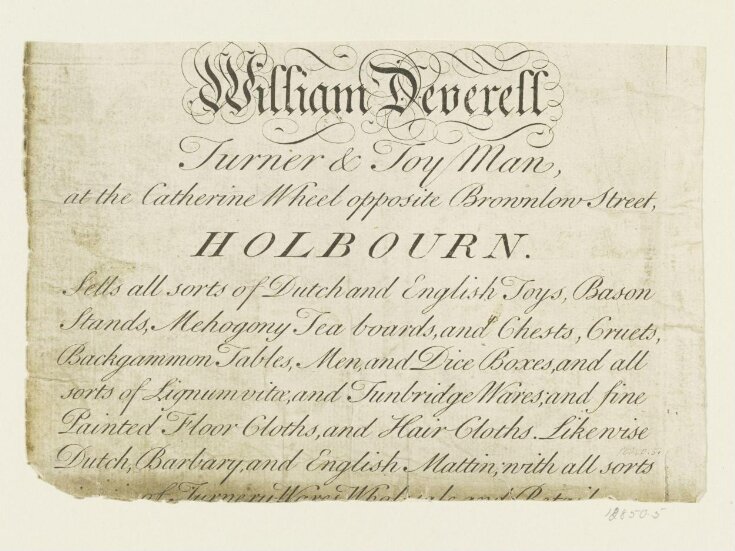 William Deverell
Turner & Toy Man,
at the Catherine Wheel opposite Brownlow Street,
HOLBOURN.
Sells all sorts of Dutch and English Toys, Bason
Stands, Mehogony Tea boards, and Chests, Cruets,
Backgammon Tables, Men, and Dice Boxes, and all
sorts of Lignumvitæ, and Tunbridge Wares; and fine
Painted Floor Cloths, and Hair Cloths. Likewise
Dutch, Barbary, and English Mattin; with all sorts
of Turnery Wares Wholesale and Retail